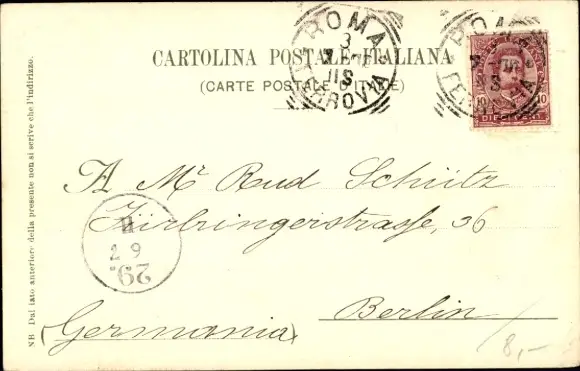 ROMA
FERROVIA
ROMA
FERROVIA
CARTOLINA POSTALE ITALIANA
(CARTE POSTALE D'ITALIE)
10 10
A Mr Rud Schütz
Fürbringerstrasse, 36
Berlin
(Germania)
29
8,-
NB Dal lato anteriore della presente non si scrive che l'indirizzo.